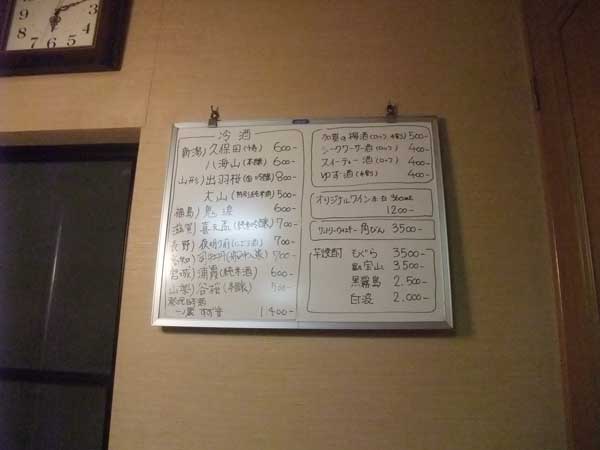 冷酒
新潟) 久保田(千寿) 600-
八海山(本醸) 600-
山形) 出羽桜(吟醸) 800-
大山(特別純米酒) 500-
福島) 600-
滋賀) 喜天孟(純米吟醸) 700-
長野) 夜明け前 700-
高知) 司牡丹 700-
宮城) 浦霞(純米酒) 600-
山梨) 谷桜(本醸) 500-
発泡清酒
一ノ蔵 すず音 1400-
加賀の梅酒(ロック) 500-
シークワーサー酒(ロック) 400-
スイーティー酒(ロック) 400-
ゆず酒 400-
オリジナルワイン 赤 白 360ml
1200-
サントリーウイスキー 角びん 3500-
芋焼酎 もぐら 3500-
宝山 3500-
黒霧島 2,500-
白波 2,000-